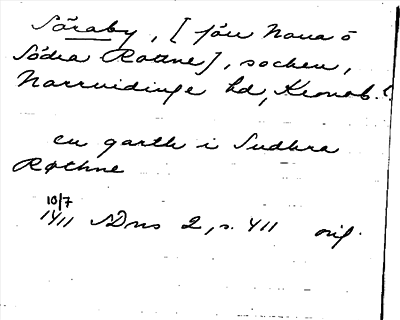 Söraby, [jfr Norra o
Södra Rottne], socken,
Norrvidinge hd, Kronob. l.
en garth i Sudhra
Røthne
10/7
1411 SDns 2, s. 411 orig.